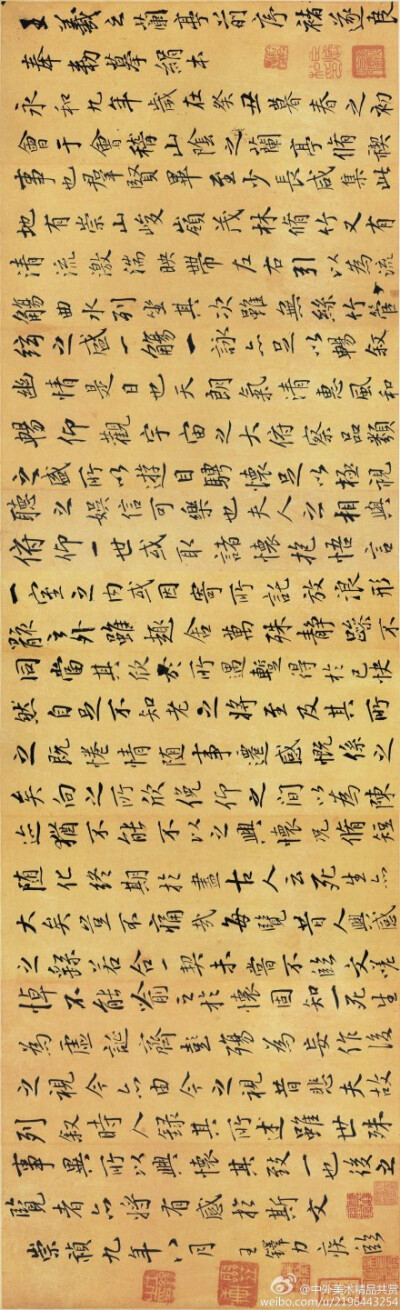 王羲之蘭亭前序褚遂良
奉勅摹絹本
永和九年歲在癸丑暮春之初
會于會稽山陰之蘭亭脩禊
事也羣賢畢至少長咸集此
地有崇山峻嶺茂林脩竹又有
清流激湍映帶左右引以為流
觴曲水列坐其次雖無絲竹管
絃之盛一觴一詠亦足以暢叙
幽情是日也天朗氣清惠風和
暢仰觀宇宙之大俯察品類
之盛所以遊目騁懷足以極視
聽之娛信可樂也夫人之相與
俯仰一世或取諸懷抱悟言
一室之内或因寄所託放浪形
骸之外雖趣舍萬殊静躁不
同當其欣於所遇暫得於己快
然自足不知老之將至及其所
之既惓情随事遷感慨係之
矣向之所欣俛仰之間以為陳
迹猶不能不以之興懷況脩短
随化終期於盡古人云死生亦
大矣豈不痛哉每覽昔人興感
之繇若合一契未嘗不臨文嗟
悼不能喻之於懷固知一死生
為虛誕齊彭殤為妄作後
之視今亦由今之視昔悲夫故
列叙時人錄其所述雖世殊
事異所以興懷其致一也後之
覽者亦將有感於斯文
崇禎九年八月王鐸力疾臨
@中外美术精品共赏
weibo.com/u/2196443254